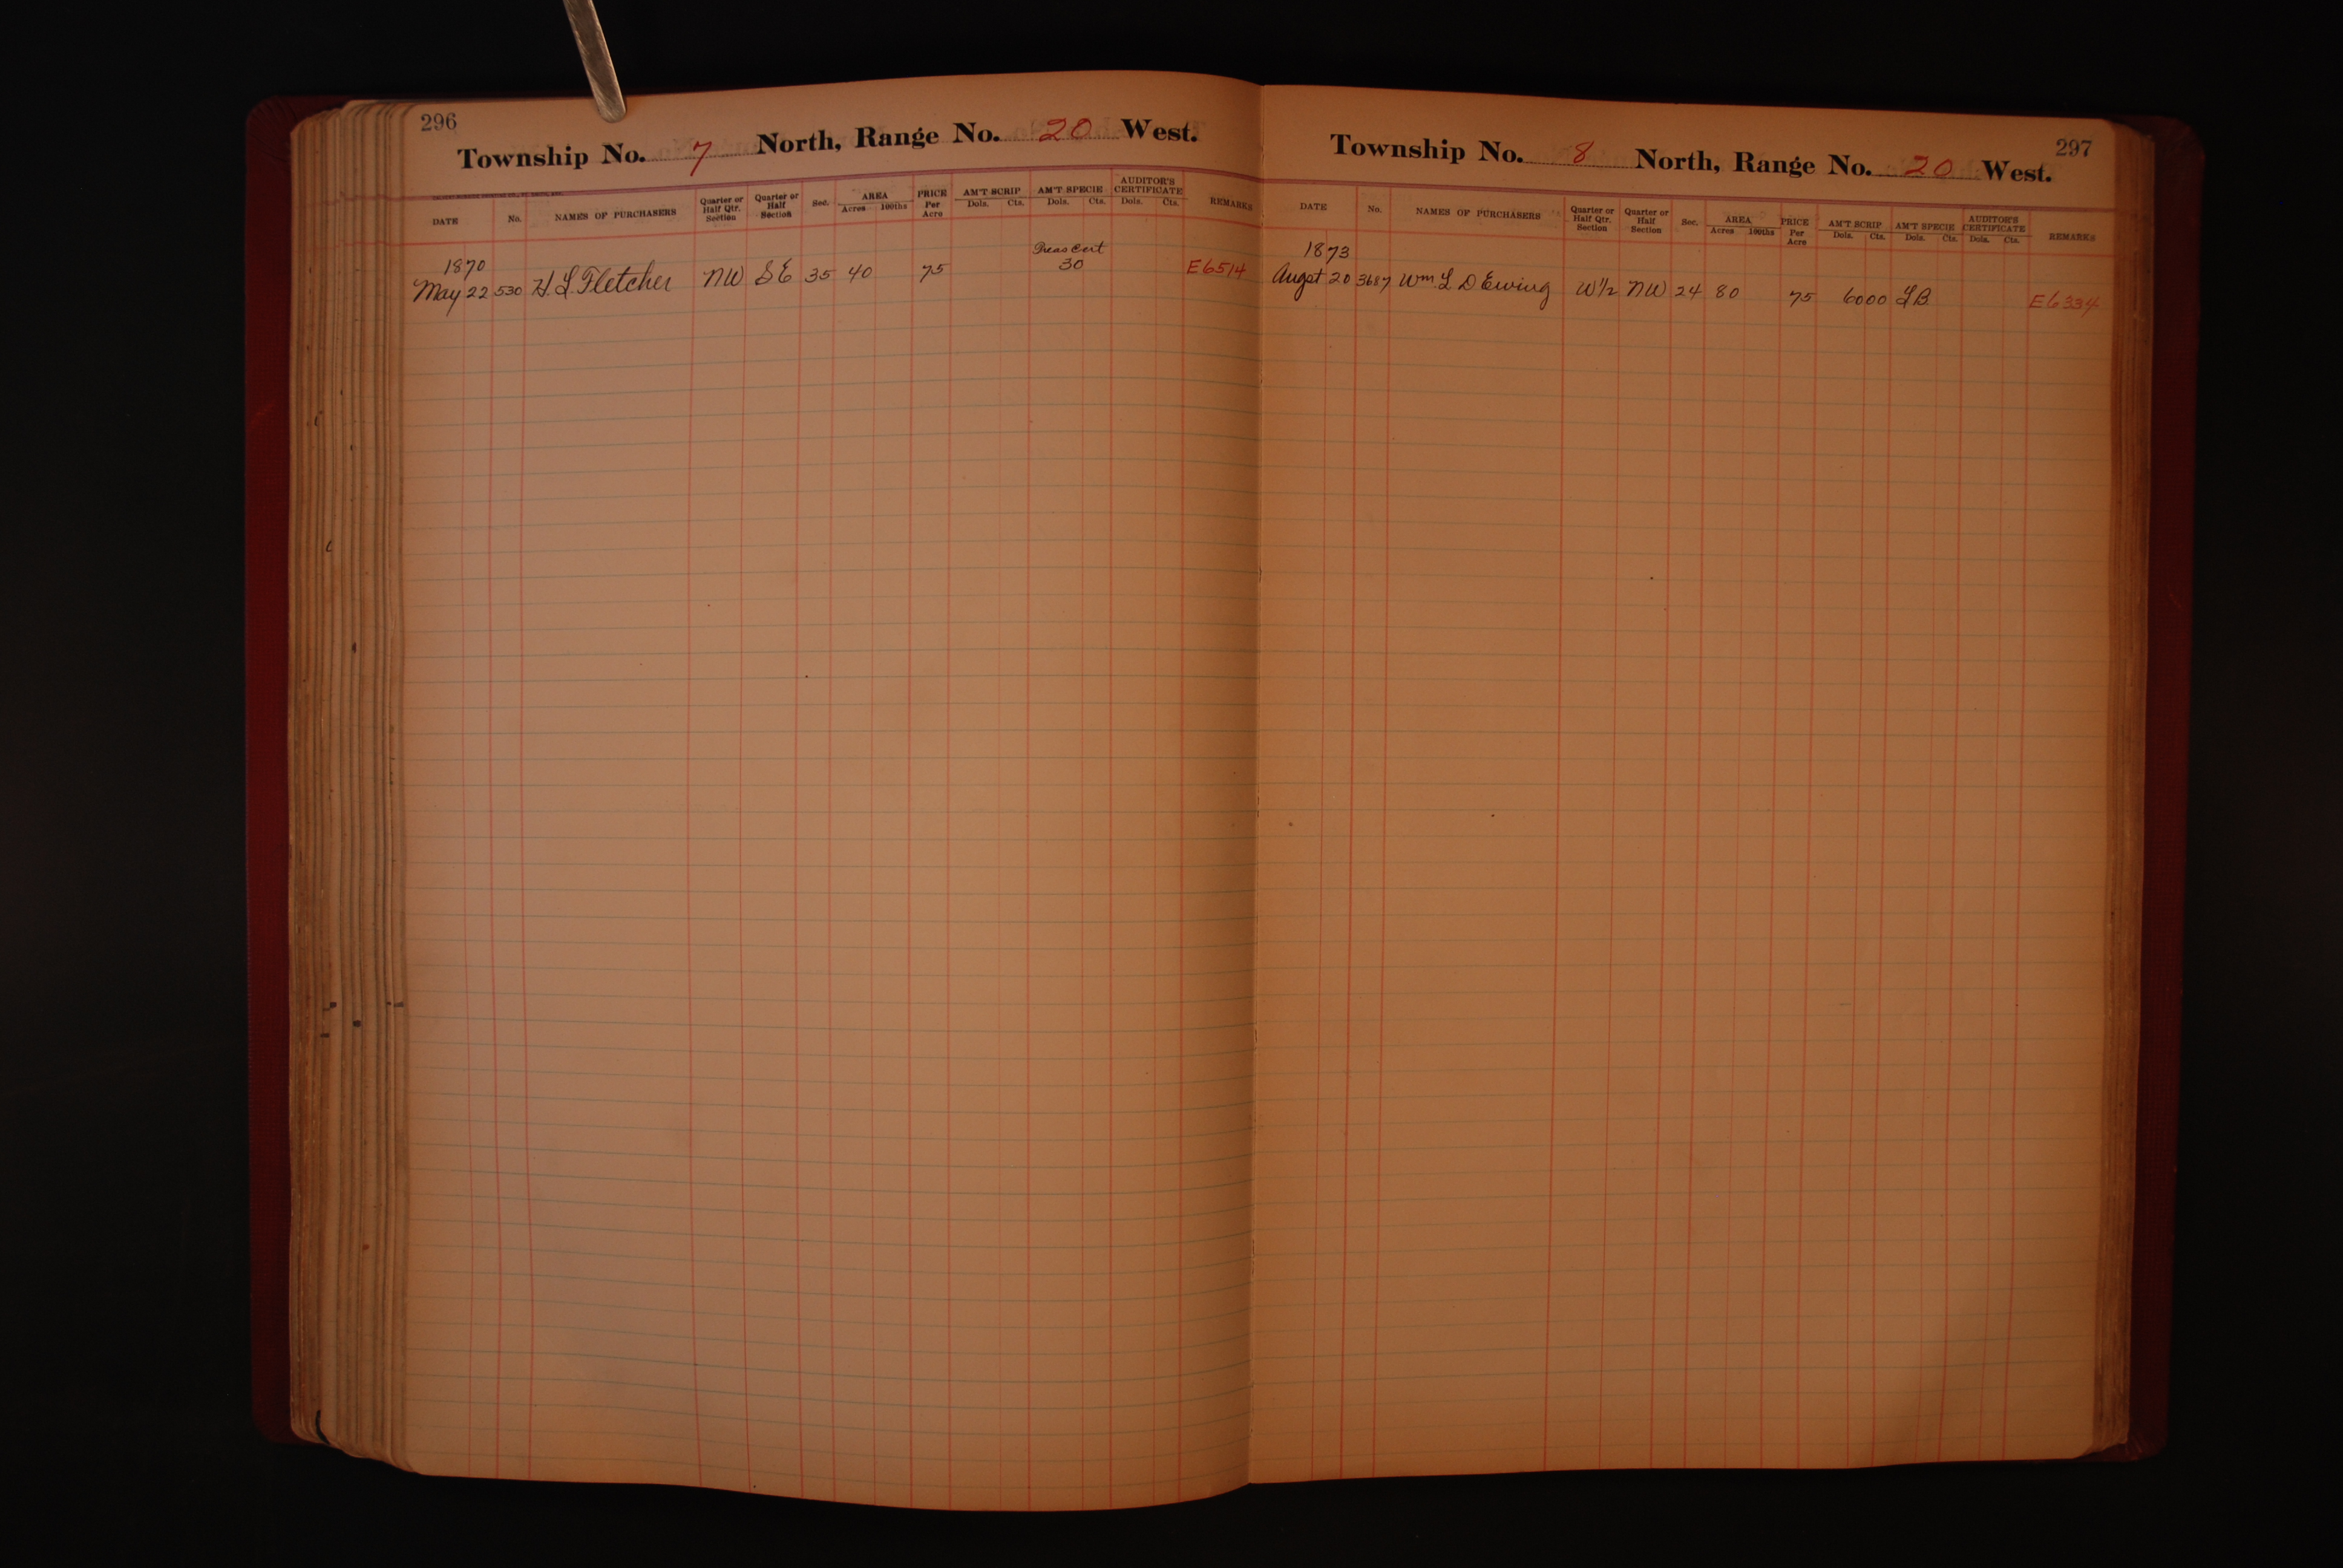 296
Township No. 7 North, Range No. 20 West.
DATE No. NAMES OF PURCHASERS Quarter or Half Qtr. Section Quarter or Half Section Sec. AREA Acres 100ths PRICE Per Acre AM'T SCRIP Dols. Cts. AM'T SPECIE Dols. Cts. AUDITOR'S CERTIFICATE Dols. Cts. REMARKS
1870 Treas Cert
May 22 530 H. L. Fletcher NW SE 35 40 75 30 E6514
297
Township No. 8 North, Range No. 20 West.
DATE No. NAMES OF PURCHASERS Quarter or Half Qtr. Section Quarter or Half Section Sec. AREA Acres 100ths PRICE Per Acre AM'T SCRIP Dols. Cts. AM'T SPECIE Dols. Cts. AUDITOR'S CERTIFICATE Dols. Cts. REMARKS
1873
Augst 20 3687 Wm. L D Ewing W½ NW 24 80 75 6000 LB E6334